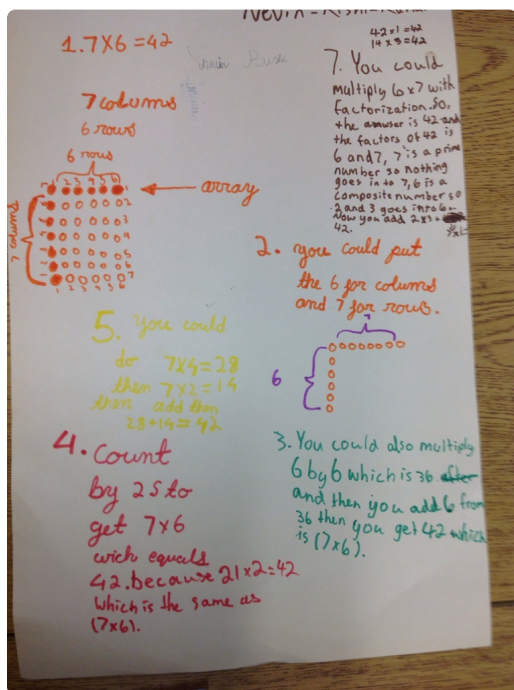 1. 7x6 =42
7 colums
6 rows
6 rows
1 2 3 4 5 6
array
2
3
4
5
6
7
1 2 3 4 5 6
42x1=42
14x3=42
7. You could
multiply 6x7 with
factorization. So,
the answer is 42 and
the factors of 42 is
6 and 7, 7 is a prime
number so nothing
goes in to 7, 6 is a
composite number so
2 and 3 goes into 6.
Now you add 2x3
42.
2. you could put
the 6 for columns
and 7 for rows.
7
6
5. you could
do 7x4=28
then 7x2=14
then add then
28+14=42
4. Count
by 2s to
get 7x6
wich equals
42. because 21x2=42
Which is the same as
(7x6).
3. You could also multiply
6 by 6 which is 36 after
and then you add 6 from
36 then you get 42 which
is (7x6).